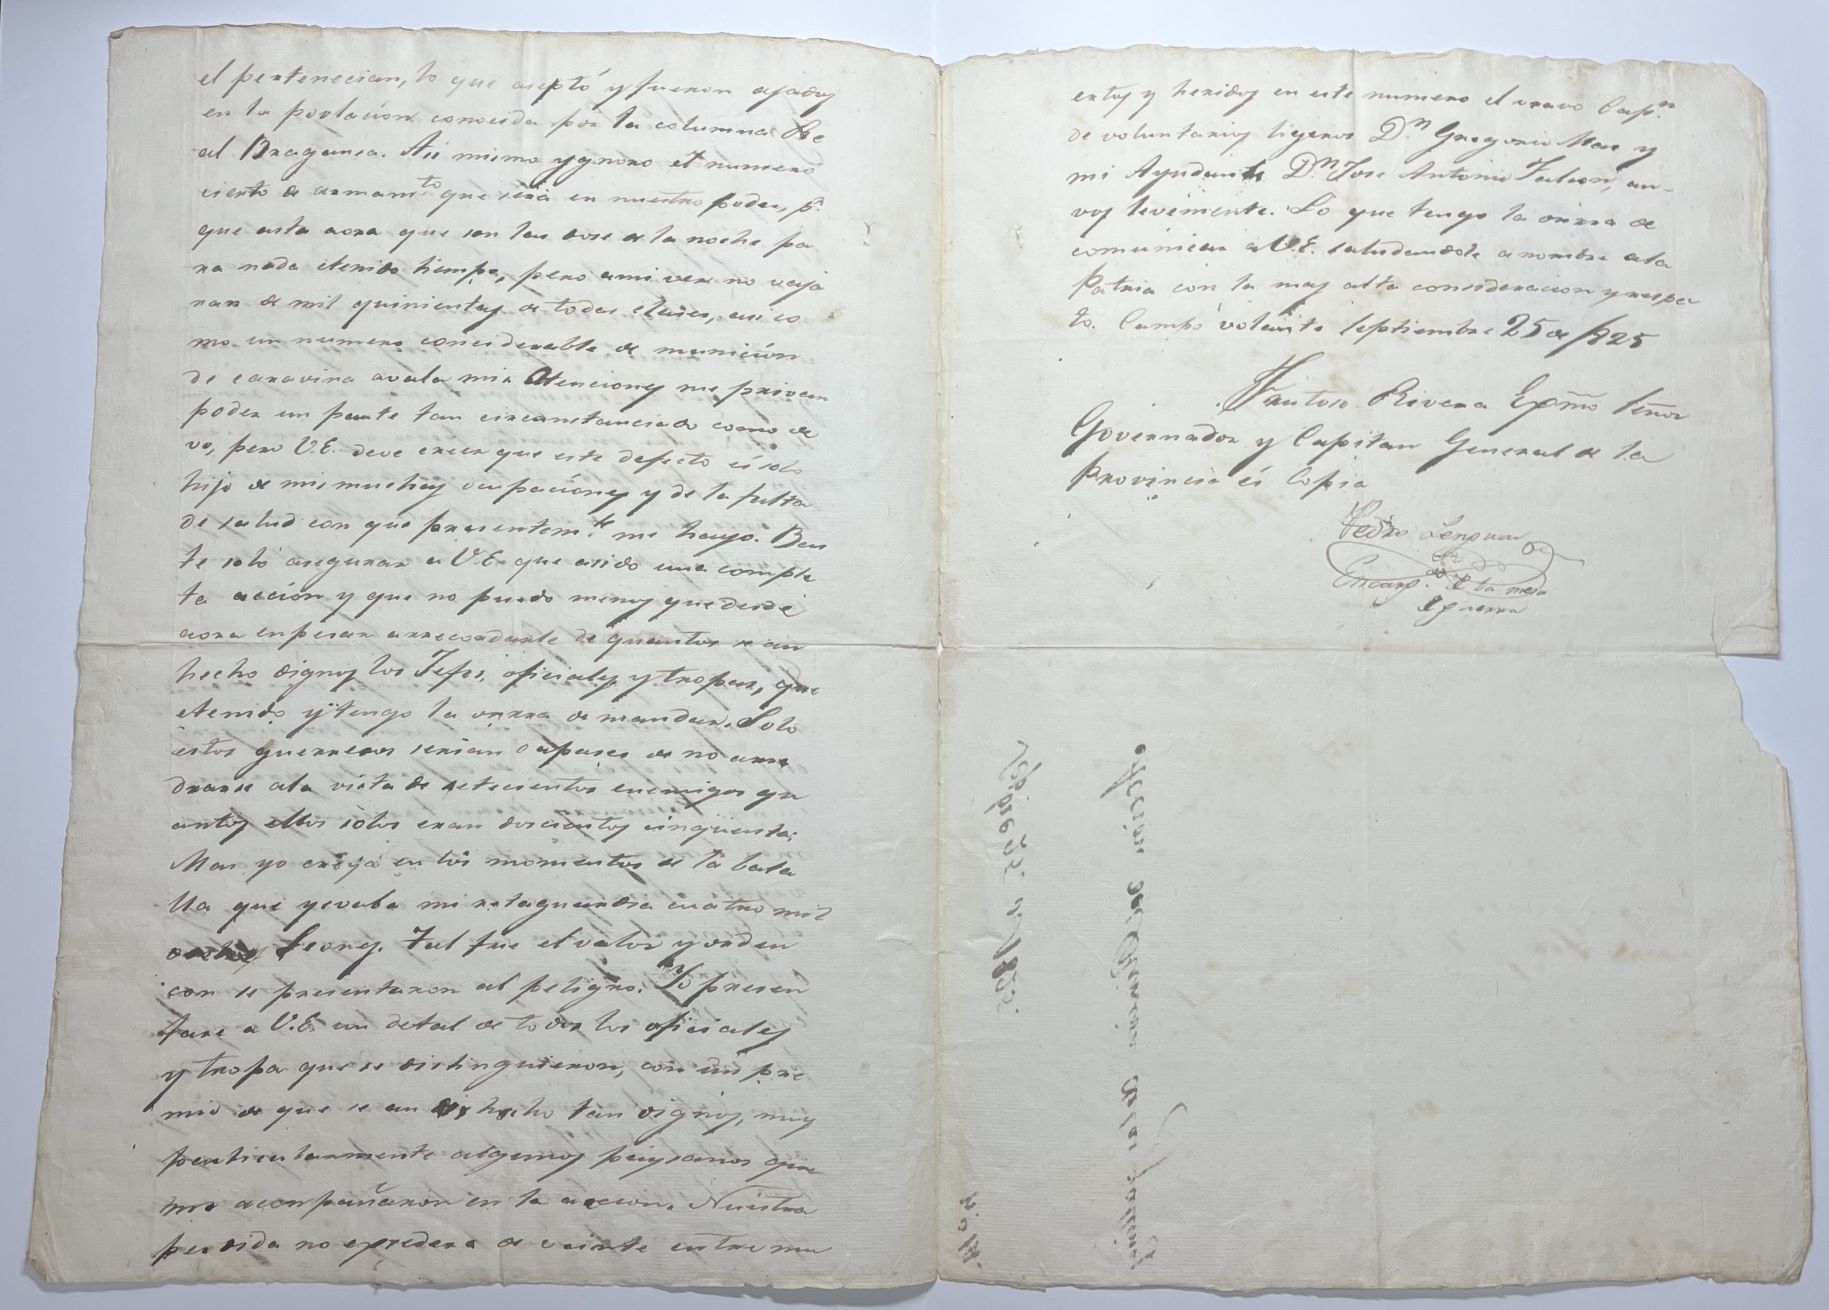 el pertenecian, lo que aseptó y fueron ajados
en la povlacion conosida por la columna de
al Bragansa. Asi mismo ygnoro el numero
cierto de armamto que será en nuestro poder, p.
que asta aora que son las dose de la noche pa
ra nada etenido tiempo, pero ami ver no vaja
ran de mil quinientas de todas clases, asi co
mo un numero considerable de munición
de caravina avala mis atenciones me privan
poder un parte tan circunstanciado como de
vo, pero V.E. deve creer que este defecto es solo
hijo de mis muchas ocupaciónes y de la falta
de salud con que presentemte me hayo. Bas
te solo asegurar a V.E. que asido una comple
ta acción y que no puedo menos que desde
aora enpesar arrecordarle de quantos se an
hecho dignos los Jefes, oficiales y tropas, que
etenido y tengo la onrra de mandar. Solo
estos guerreros serian capases de no arre
drarse ala vista de setecientos enemigos qu
antos ellos solos eran doscientos cinquenta;
Mas yo creya en los momentos de la bata
lla que yevaba mi retaguardia cuatro mil
Leones. Tal fue el valor y orden
con se presentaron al peligro. Yo presen
tare a V.E. un detal de todos los oficiales
y tropa que se distinguieron, con un pre
mio de que se an hecho tan dignos, muy
particularmente algunos paysanos que
me aconpañaron en la accion. Nuestra
perdida no exedera de veinte entre mu
ertos y heridos en este numero el vravo Capn
de voluntarios ligeros Dn Gregorio Mas y
mi Ayudante Dn Jose Antonio Falcon, an-
vos levemente. Lo que tengo la onrra de
comunicar a V.E. saludandole a nombre ala
Patria con la mas alta consideracion y respe
to. Campo volante Septiembre 25 de 1825
Frutoso Rivera Exmo Señor
Governador y Capitan General de la
Provincia és Copia
Pedro Lenguas
Encargdo de la mesa
de guerra
Acción del Rincon de las Gallinas